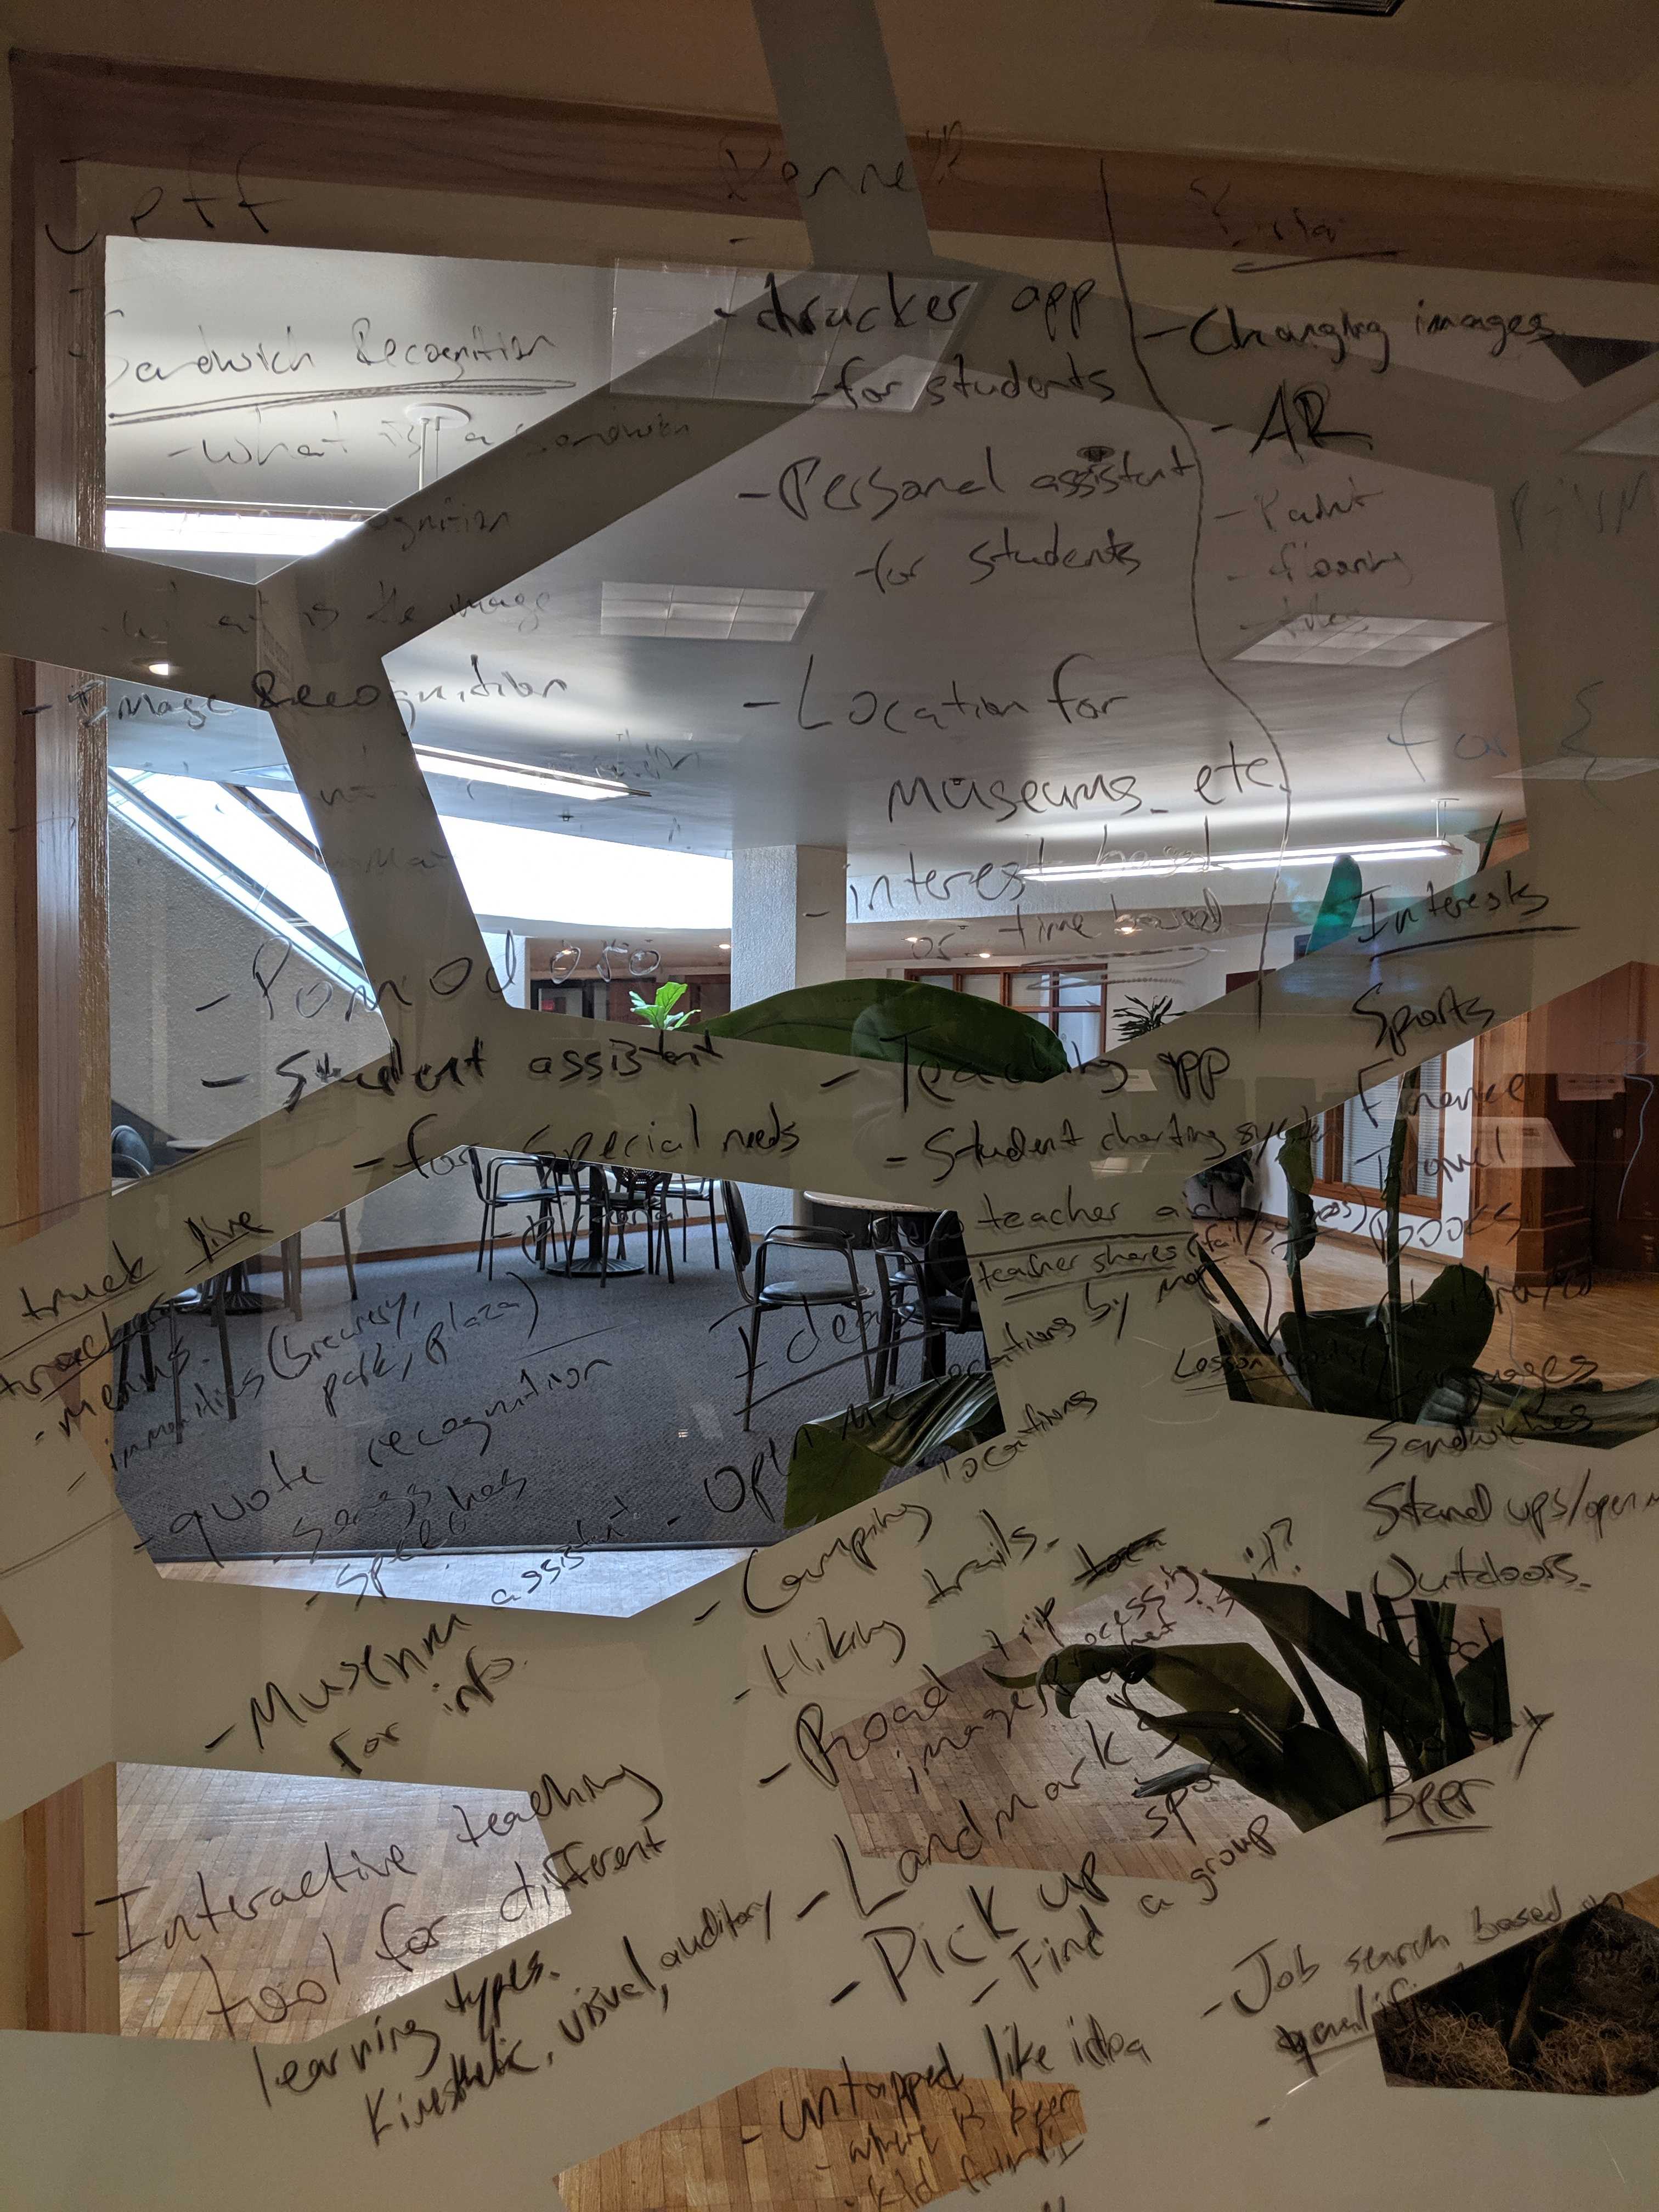 Jeff
Sandwich Recognition
- what is a sandwich
recognition
what is the image
- Image Recognition
- Pomodoro
- Student assistant
- for special needs
truck live
tracker
- menus.
(brewery,
park, plaza)
- quote recognition
- songs
- speeches
- Museum assistant
for info.
- Interactive teaching
tool for different
learning types.
Kinesthetic, visual, auditory
- tracker app
- for students
- Personal assistant
for students
- Location for
museums. etc.
- interest based
or time based
- Teaching app
- Student charting system
teacher aid
teacher shares (fail/success)
Lesson
Ideas
- Open mic locations by map
- Camping locations
- Hiking trails.
- Road trip
image processing
what is it?
- Landmarks
- Pick up sports
- Find a group
- untapped like idea
- where is beer
- kid friendly
- Changing images
- AR
- Paint
- flooring
- tiles
for
Interests
Sports
Finance
Travel
Books
Languages
Sandwiches
Stand ups/open
Outdoors.
Food
Beer
- Job search based on